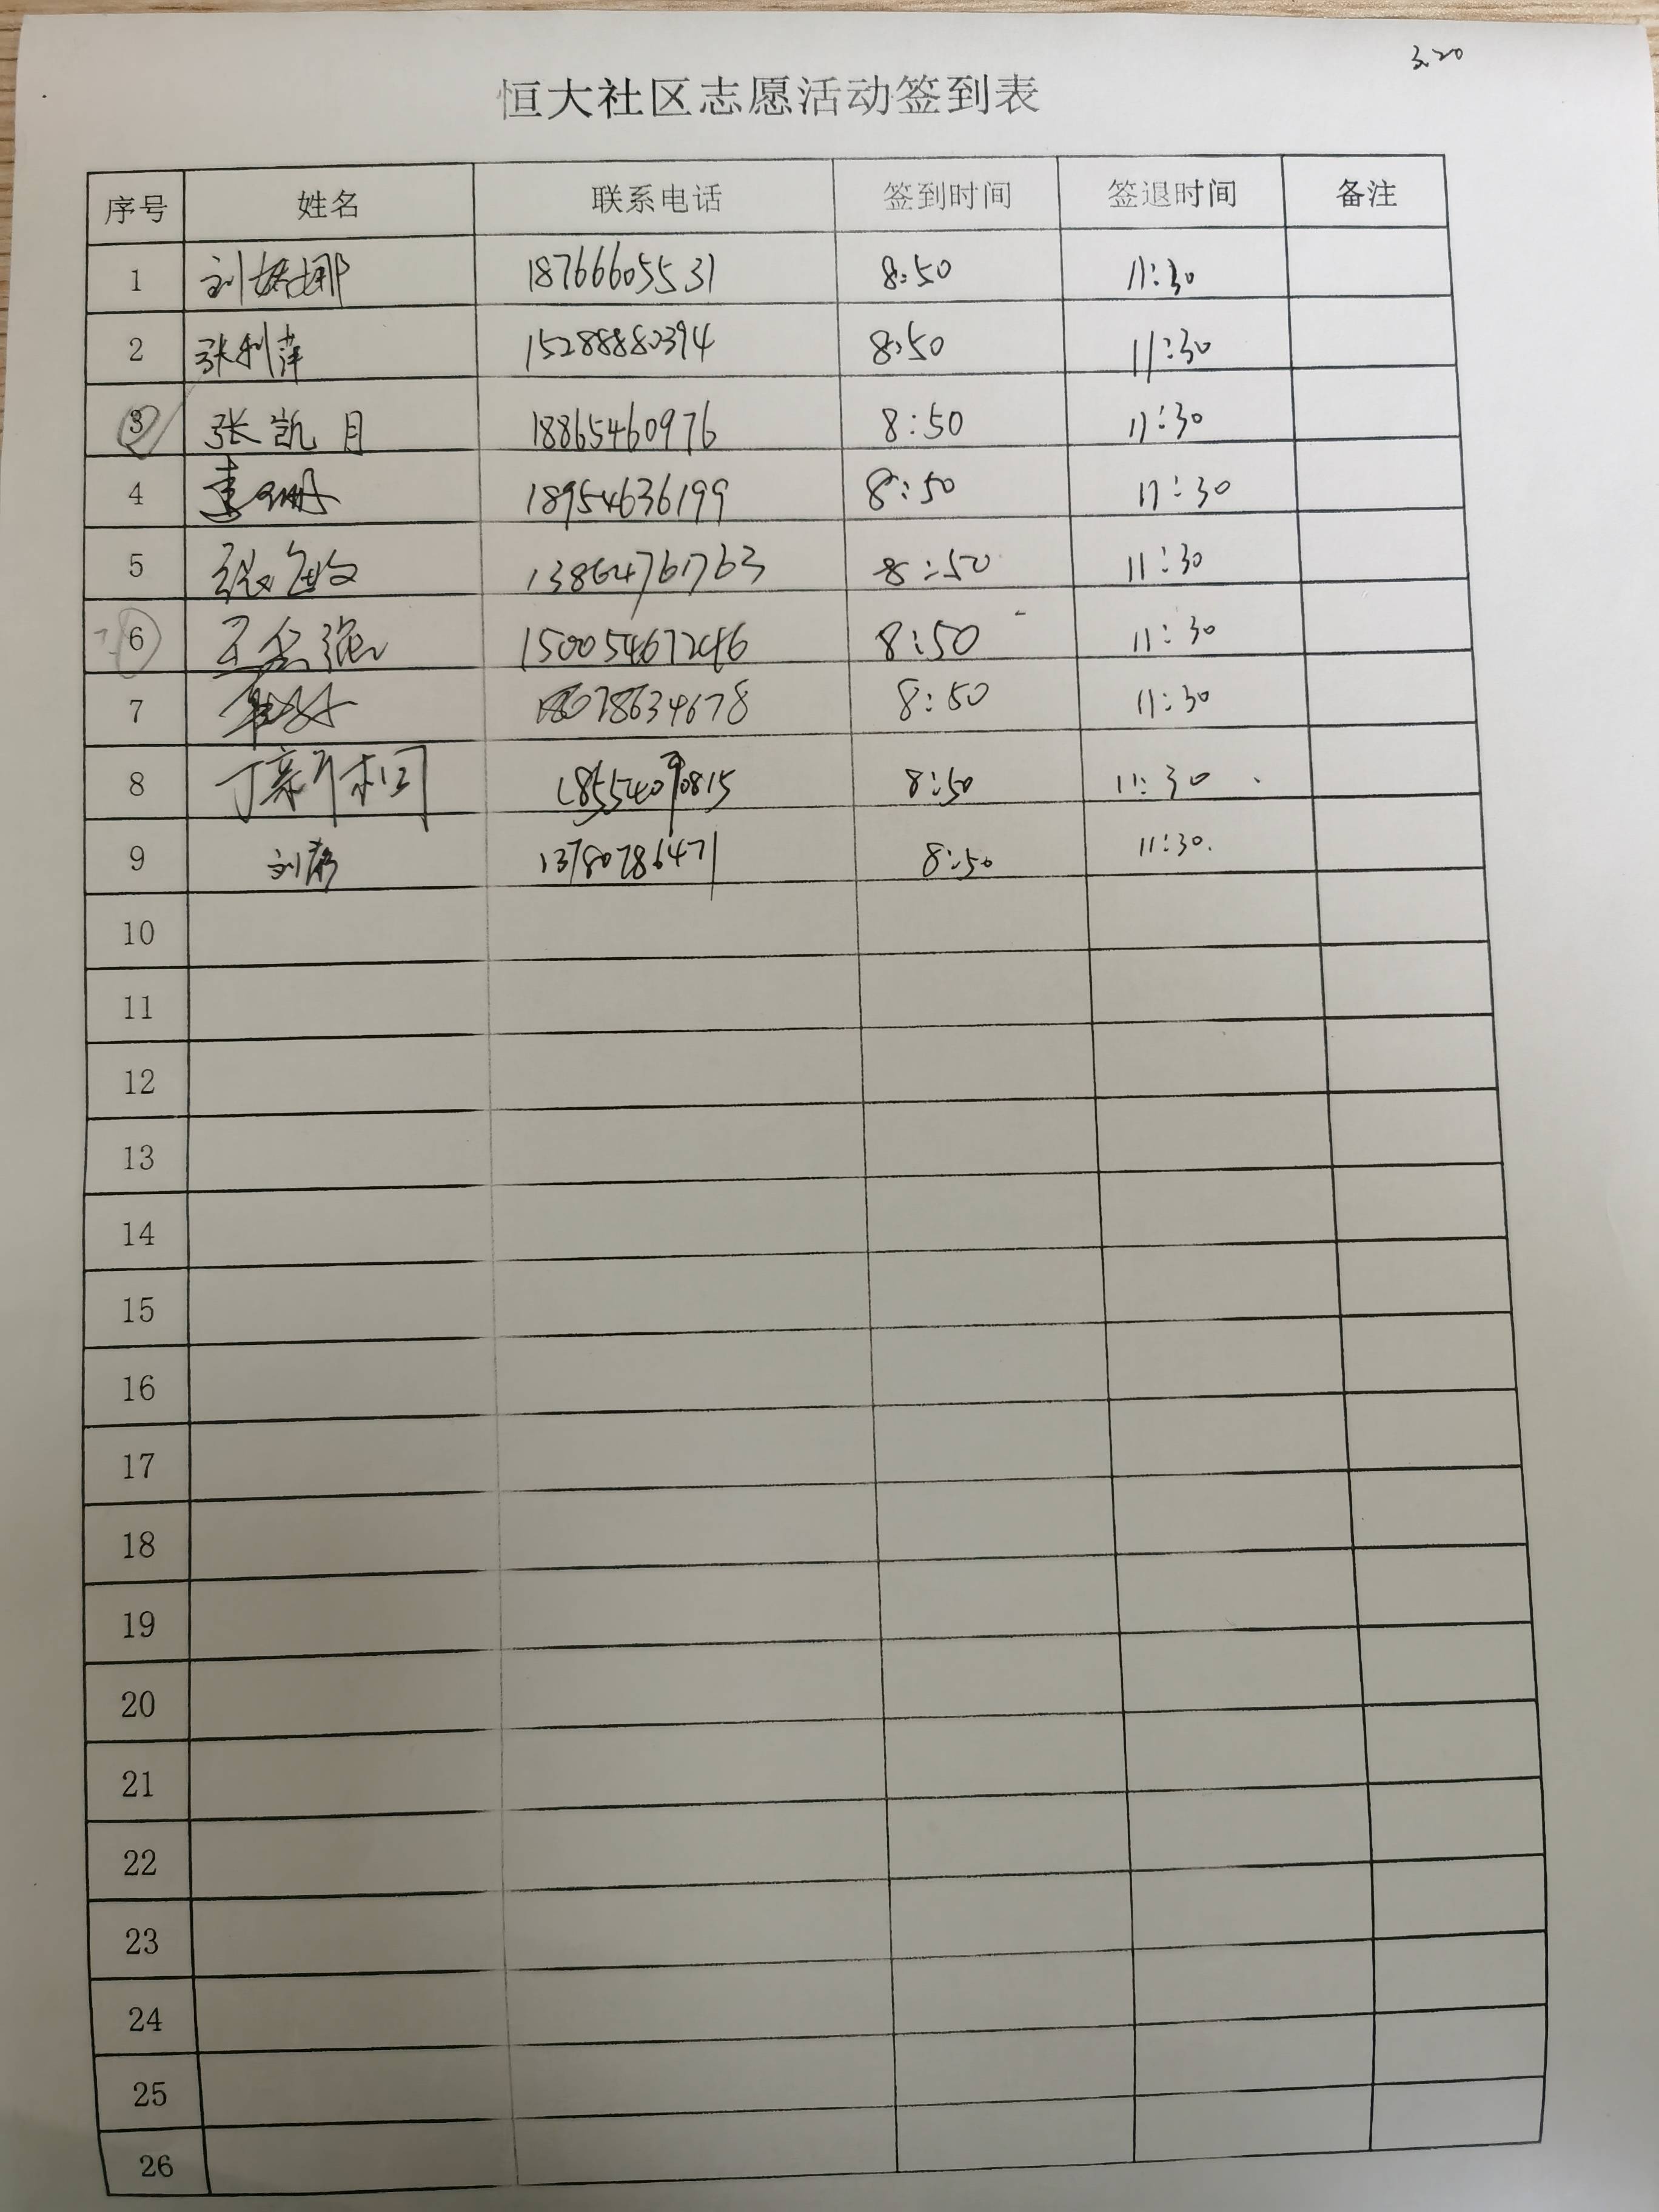 3.20
恒大社区志愿活动签到表
序号 姓名 联系电话 签到时间 签退时间 备注
1 刘婷娜 18766605531 8:50 11:30
2 张利萍 15288880394 8:50 11:30
3 张凯月 18865460976 8:50 11:30
4 18954636199 8:50 11:30
5 13864761763 8:50 11:30
6 15005467246 8:50 11:30
7 8:50 11:30
8 丁新相 18554090815 8:50 11:30
9 刘 13780786471 8:50 11:30
10
11
12
13
14
15
16
17
18
19
20
21
22
23
24
25
26